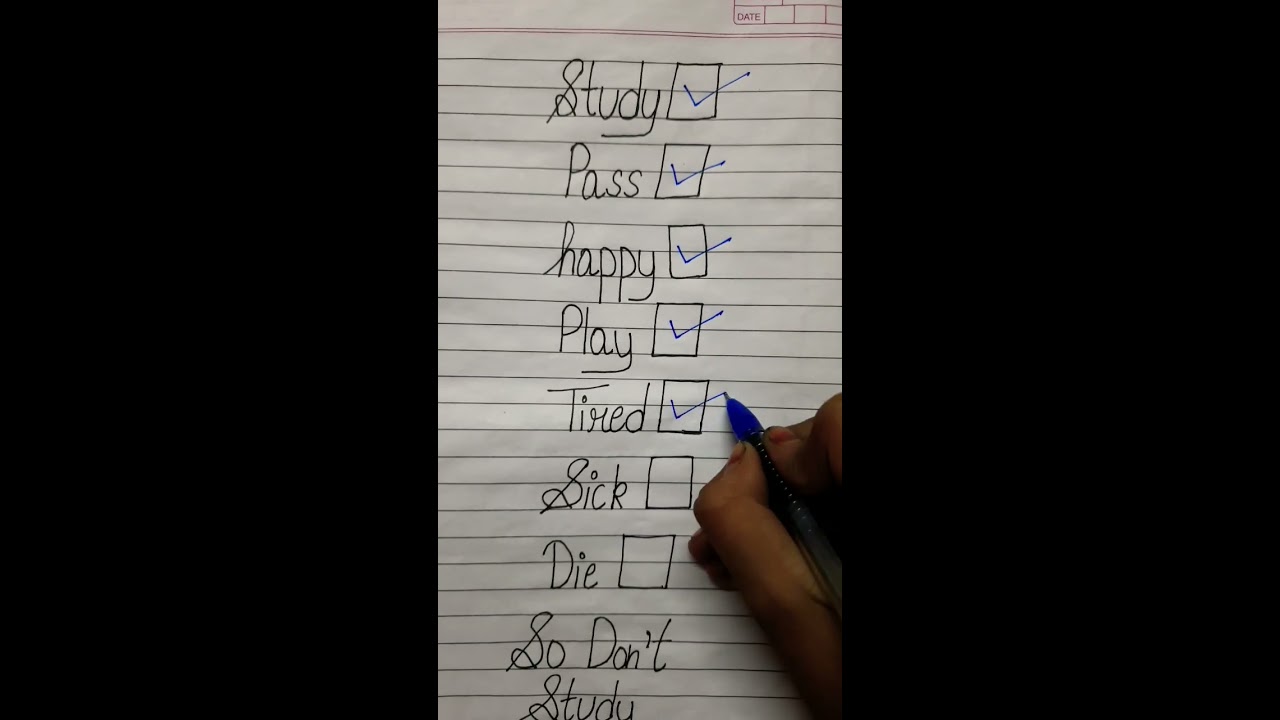 DATE
Study
Pass
happy
Play
Tired
Sick
Die
So Don't
Study